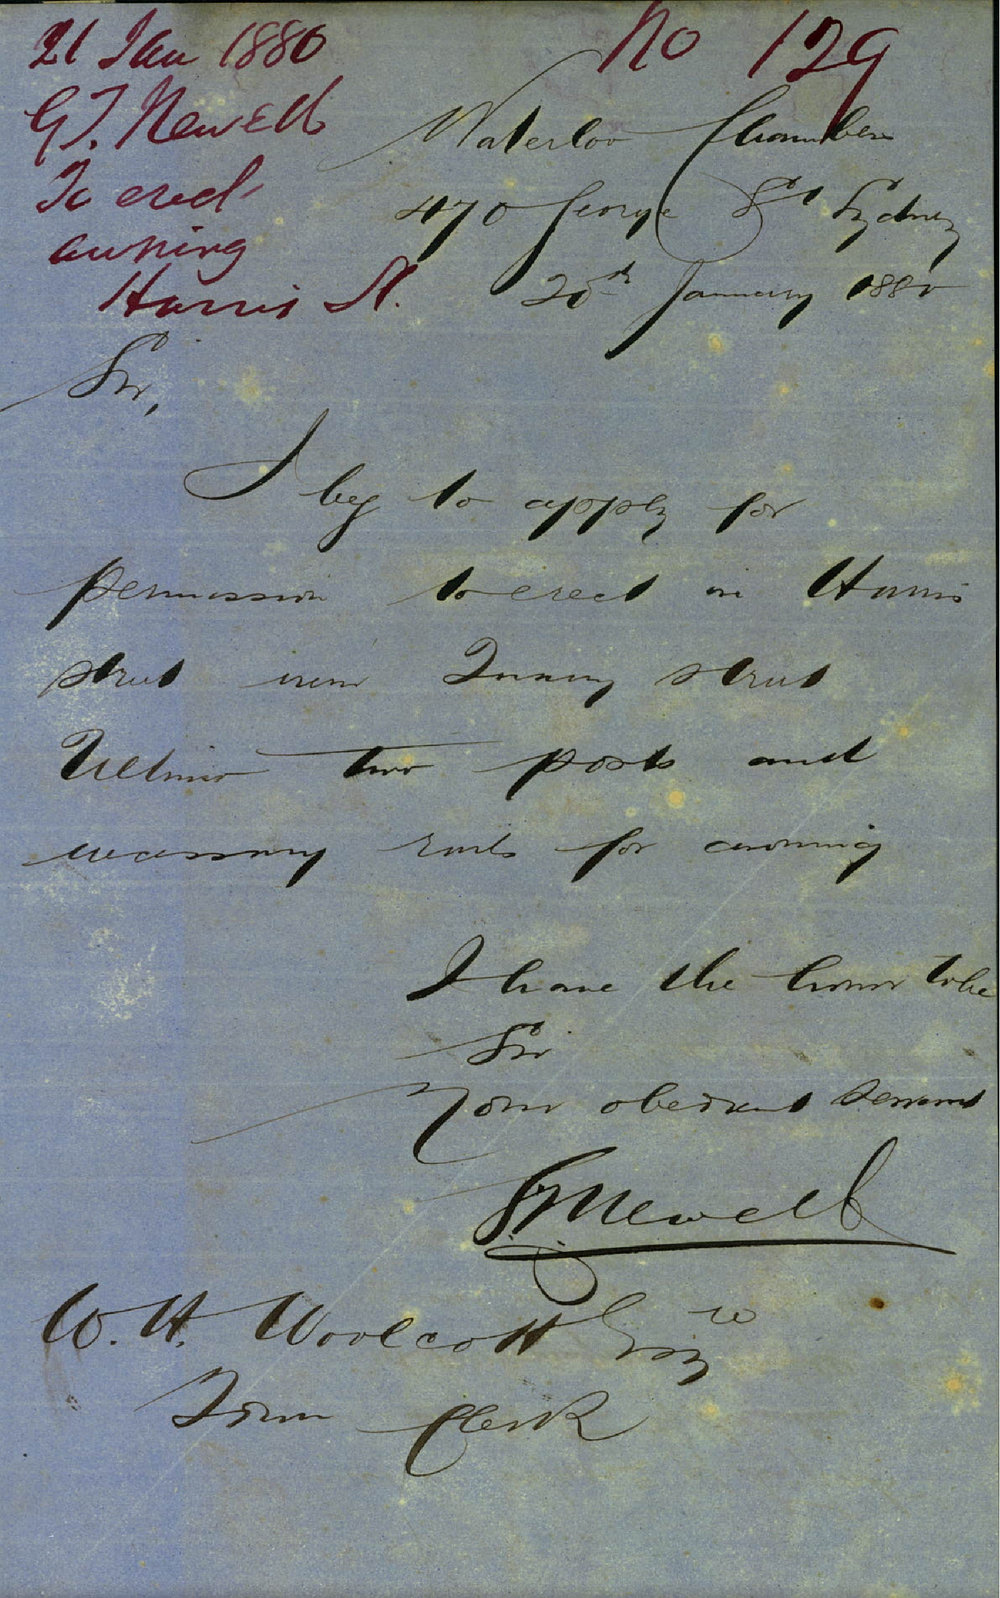 21 Jan 1880
No 129
G.T. Newell
To erect
awning
Harris St.
Waterloo Chambers
470 George St Sydney
20th January 1880
Sir,
I beg to apply for
permission to erect in Harris
street near Quarry street
Ultimo two posts and
necessary rails for awning
I have the honor to be
Sir
Your obedient servant
G.T. Newell
W.H. Woolcott Esq
Town Clerk